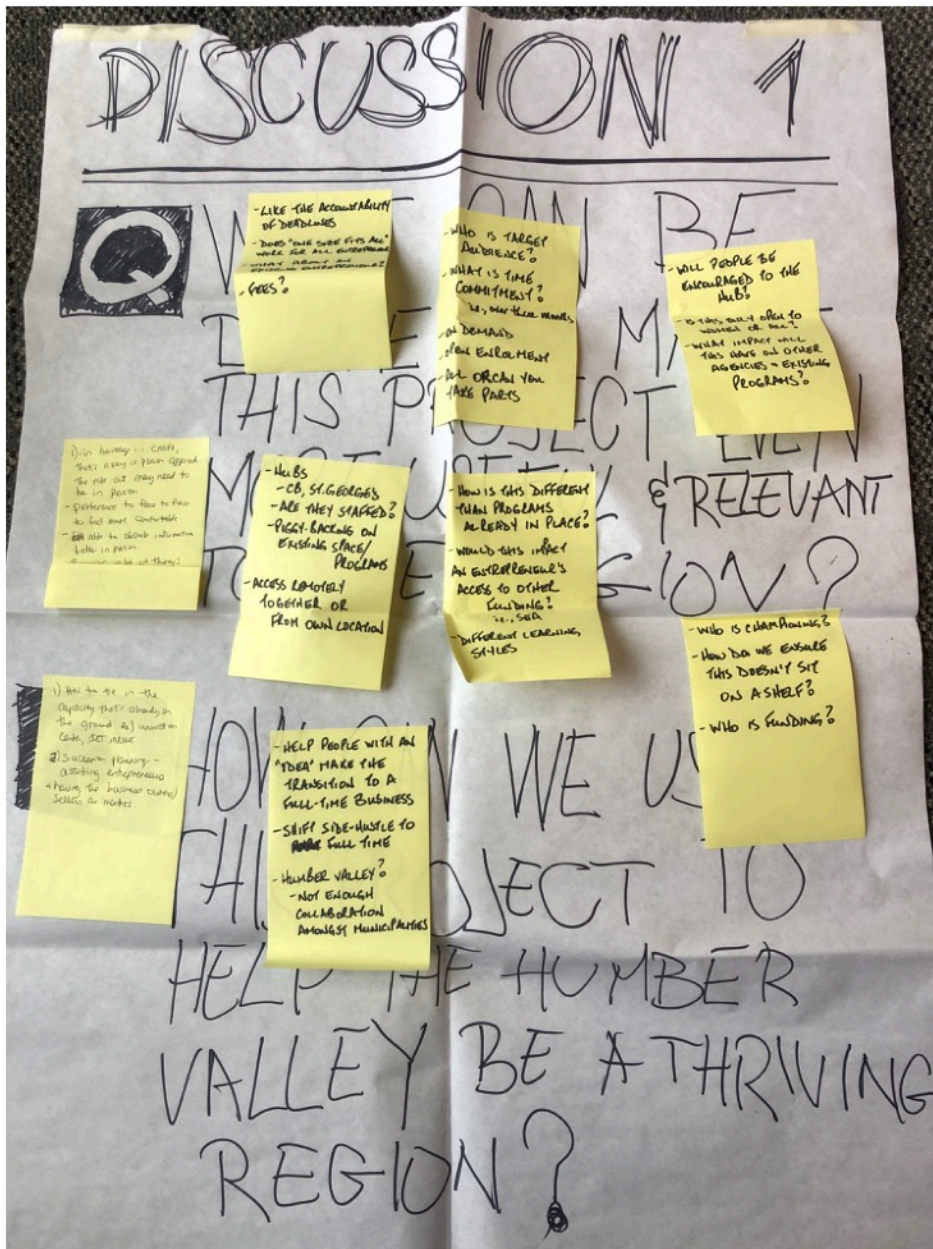 DISCUSSION 1
Q
W CAN BE
- LIKE THE ACCOUNTABILITY
OF DEADLINES
- DOES "ONE SIZE FITS ALL"
WORK FOR ALL ENTREPRENEUR
- WHAT ABOUT AN
EXISTING ENTREPRENEUR?
- FEES?
- WHO IS TARGET
AUDIENCE?
- WHAT IS TIME
COMMITMENT?
ie, over three months
- ON DEMAND
- OPEN ENROLMENT
- ALL OR CAN YOU
TAKE PARTS
- WILL PEOPLE BE
ENCOURAGED TO THE
HUB?
- IS THIS ONLY OPEN TO
WOMEN OR ALL?
- WHAT IMPACT WILL
THIS HAVE ON OTHER
AGENCIES + EXISTING
PROGRAMS?
D M
THIS P JECT EVEN
M & RELEVANT
TO GION?
that's a very in person approach
The role out may need to
be in person
- preference to face to face
to feel more comfortable
- able to absorb information
better in person
- HUBS
- CB, ST. GEORGES
- ARE THEY STAFFED?
- PIGGY-BACKING ON
EXISTING SPACE/
PROGRAMS
- ACCESS REMOTELY
TOGETHER OR
FROM OWN LOCATION
- HOW IS THIS DIFFERENT
THAN PROGRAMS
ALREADY IN PLACE?
- WOULD THIS IMPACT
AN ENTREPRENEUR'S
ACCESS TO OTHER
FUNDING?
ie., SEA
- DIFFERENT LEARNING
STYLES
- WHO IS CHAMPIONING?
- HOW DO WE ENSURE
THIS DOESN'T SIT
ON A SHELF?
- WHO IS FUNDING?
1) How to tie in the
capacity that's already on
the ground ex) innovation
2) Succession planning -
assisting entrepreneurs
+ having the business owners/
sellers as mentors.
- HELP PEOPLE WITH AN
"IDEA" MAKE THE
TRANSITION TO A
FULL-TIME BUSINESS
- SHIFT SIDE-HUSTLE TO
FULL TIME
- HUMBER VALLEY?
- NOT ENOUGH
COLLABORATION
AMONGST MUNICIPALITIES
HOW AN WE US
THI OJECT TO
HELP THE HUMBER
VALLEY BE A THRIVING
REGION?